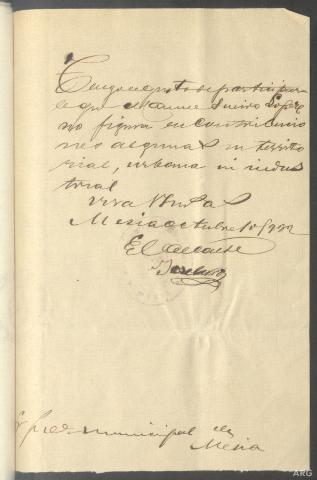 Tengo el gusto de participar
le que Manuel Sueiro Lopez
no figura en contribucio
nes algunas ni territo
rial, urbana ni indus
trial
Viva Vd. m. a.
Mesia octubre 10/922
El Alcalde
Sr Juez municipal de
Mesia
ARG